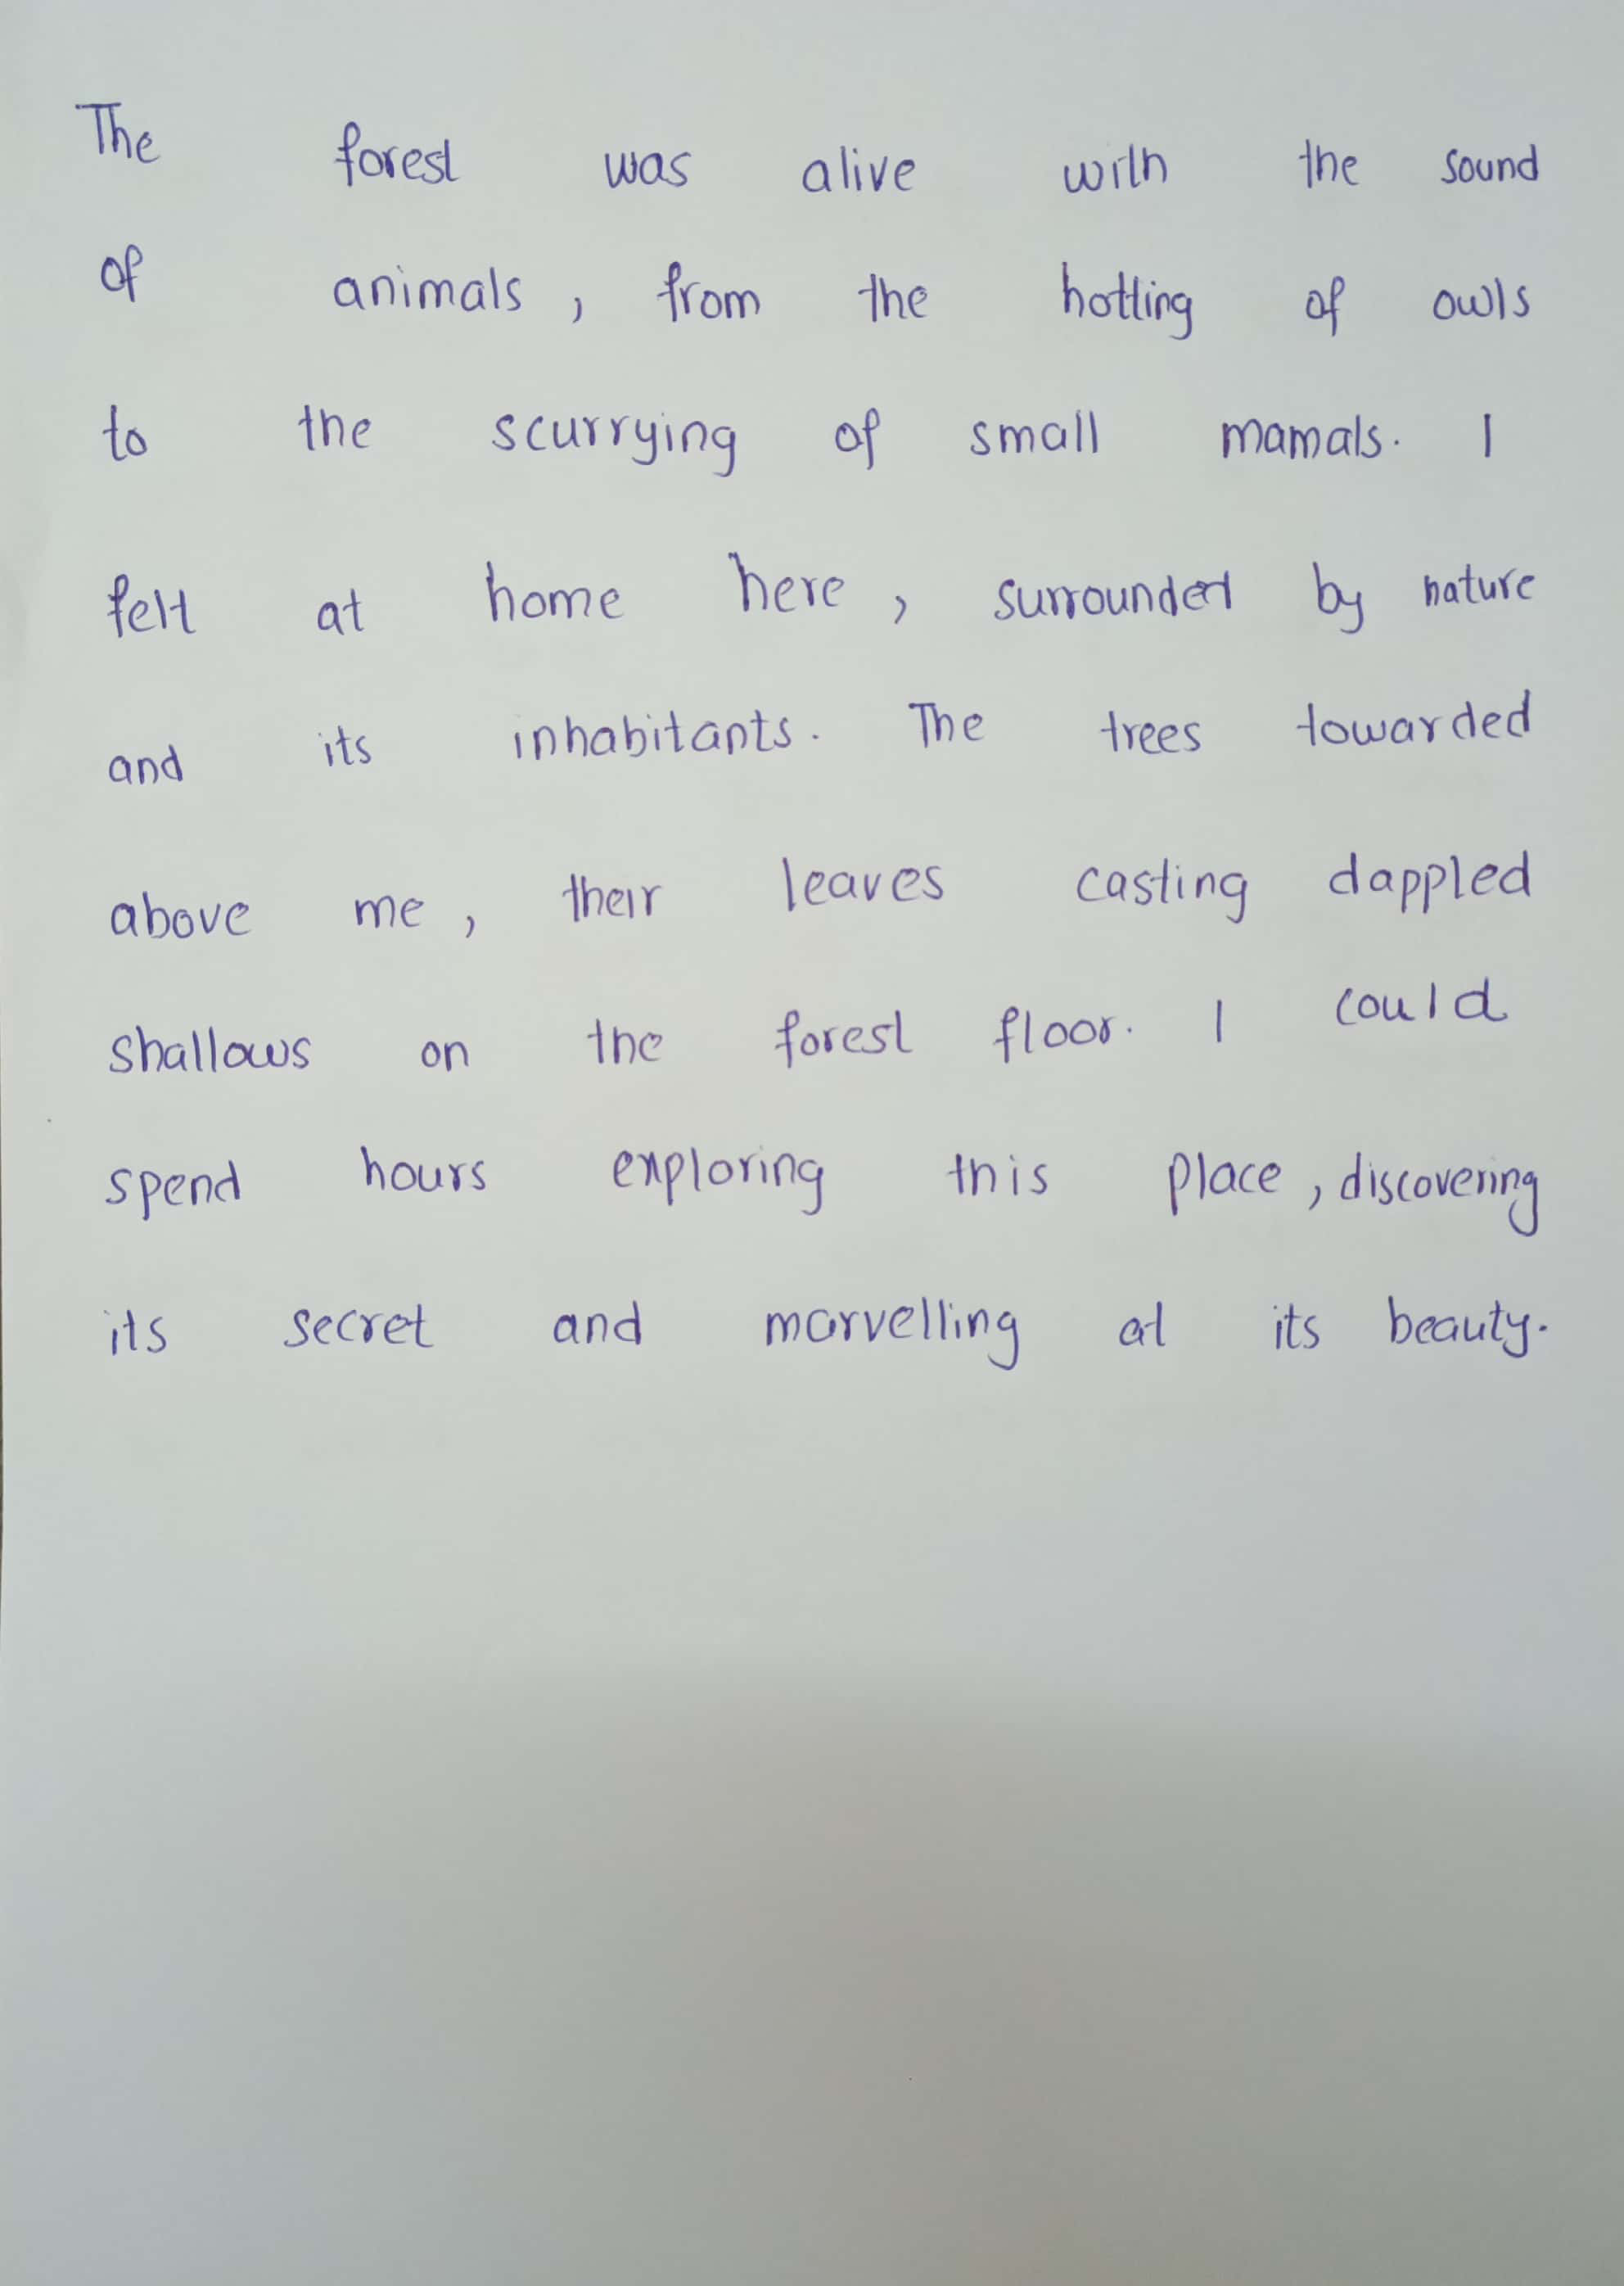 The forest was alive with the sound
of animals, from the hotting of owls
to the scurrying of small mamals. I
felt at home here, surrounded by nature
and its inhabitants. The trees towarded
above me, their leaves casting dappled
shallows on the forest floor. I could
spend hours exploring this place, discovering
its secret and marvelling at its beauty.